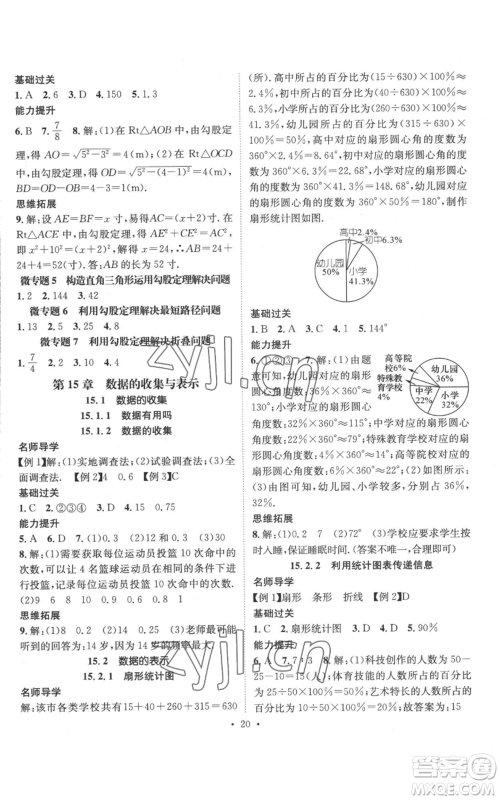 基础过关
1. A  2. 6  3. D  4. 150  5. 1,3
能力提升
6. B  7. 7/8  8. 解:(1)在 Rt△AOC 中,由勾股定
理,得 AO=√5²-3²=4(m).(2)在 Rt△OCD 中,
由勾股定理,得 OD=√5²-(4-1)²=4(m),
BD=OD-OB=4-3=1(m).
思维拓展
9. 解:设 AE=BF=x,则 AC=(x+2).在
Rt△ACE 中,由勾股定理,得 AC²=AE²+CE²,
即(x+2)²=x²+10²,解得 x=24,∴AC=24+2,
24+24+4=52(尺).故木的长为 52 寸.
微专题 5  构造直角三角形运用勾股定理解决问题
1. 2  2. 144  3. 42
微专题 6  利用勾股定理解决最短路径问题
1. 13  2. 5  3. 25  4. 8
微专题 7  利用勾股定理解决折叠问题
1. 7/4  2. 2  3. 4  4. 2
第 15 章  数据的收集与表示
15.1  数据的收集
15.1.1  数据有用吗
15.1.2  数据的收集
名师导学
【例 1】解:(1)实地调查法;(2)试验调查法;(3)全
面调查法.【例 2】C  【例 3】4  0.4
基础过关
1. C  2. ②③④  3. D  4. 0.15  5. 0.75
能力提升
5. A  6. D  7. 0.25
8. 解:(1)每个篮球运动员投篮 10 次命中的次
数.(2)4 名篮球运动员投篮 10 次命中的次数.
(3)比较每位运动员投篮 10 次命中的次数.
(4)9  6  8  9
思维拓展
9. 解:(1)8  0.2  14  0.4  (2)14 岁 (3)老师最可能
听到的回答是:14 岁,因为 14 岁的频率最大.
15.2  数据的表示
15.2.1  扇形统计图
名师导学
解:(1)该市各类学校共有 15+40+260+315=630
(所).高中所占的百分比为(15÷630)×100%≈
2.4%,初中所占的百分比为(40÷630)×100%≈
6.3%,小学所占的百分比为(260÷630)×100%≈
41.3%,幼儿园所占的百分比为(315÷630)×
100%=50%.(2)高中对应的扇形圆心角的度数为
360°×2.4%=8.64°,初中对应的扇形圆心角的度
数为 360°×6.3%=22.68°,小学对应的扇形圆心
角的度数为 360°×41.3%=148.68°,幼儿园对应
的扇形圆心角的度数为 360°×50%=180°.制作
扇形统计图如图.
高中2.4%
初中6.3%
幼儿园
50%
小学
41.3%
基础过关
1. B  2. A  3. D  4. A  5. 144°
能力提升
6. ①②③  7. ③  8. 解:(1)由题
意可知,幼儿园所对应的
扇形圆心角的度数是
360°×36%≈130°;小学
所对应的扇形圆心角的度数是
360°×32%≈115°;中学所对应的扇形圆心角的度
数是 360°×22%≈79°;特殊教育学校所对应的扇
形圆心角的度数是 360°×4%≈14°;高等院校所对
应的扇形圆心角的度数是 360°×6%≈22°.(2)如
图所示:(3)由图可知,幼儿园、小学较多.(答案不唯
一)
高等院
校6%
特殊教
育学校4%
幼儿园
36%
中学
22%
小学
32%
思维拓展
9. 解:(1)0.2  7  (2)72°  (3)学校应要求学生多
按时上交手机.(答案不唯一,合理即可)
15.2.2  利用统计图表传递信息
名师导学
【例 1】扇形  条形  折线  【例 2】D
基础过关
1. C  2. 扇形统计图  3. D  4. D  5. 90%
能力提升
6. A  7. 7  13  8. 解:(1)科技创作的人数为 50-
25-10=15(人).(2)体育技能的人数所占的百分
比为 25÷50×100%=50%;艺术特长的人数所占的
百分比为 10÷50×100%=20%.故答案为:15
· 20 ·
zyjl.cn
作业精灵
答案圈
MXQE.COM